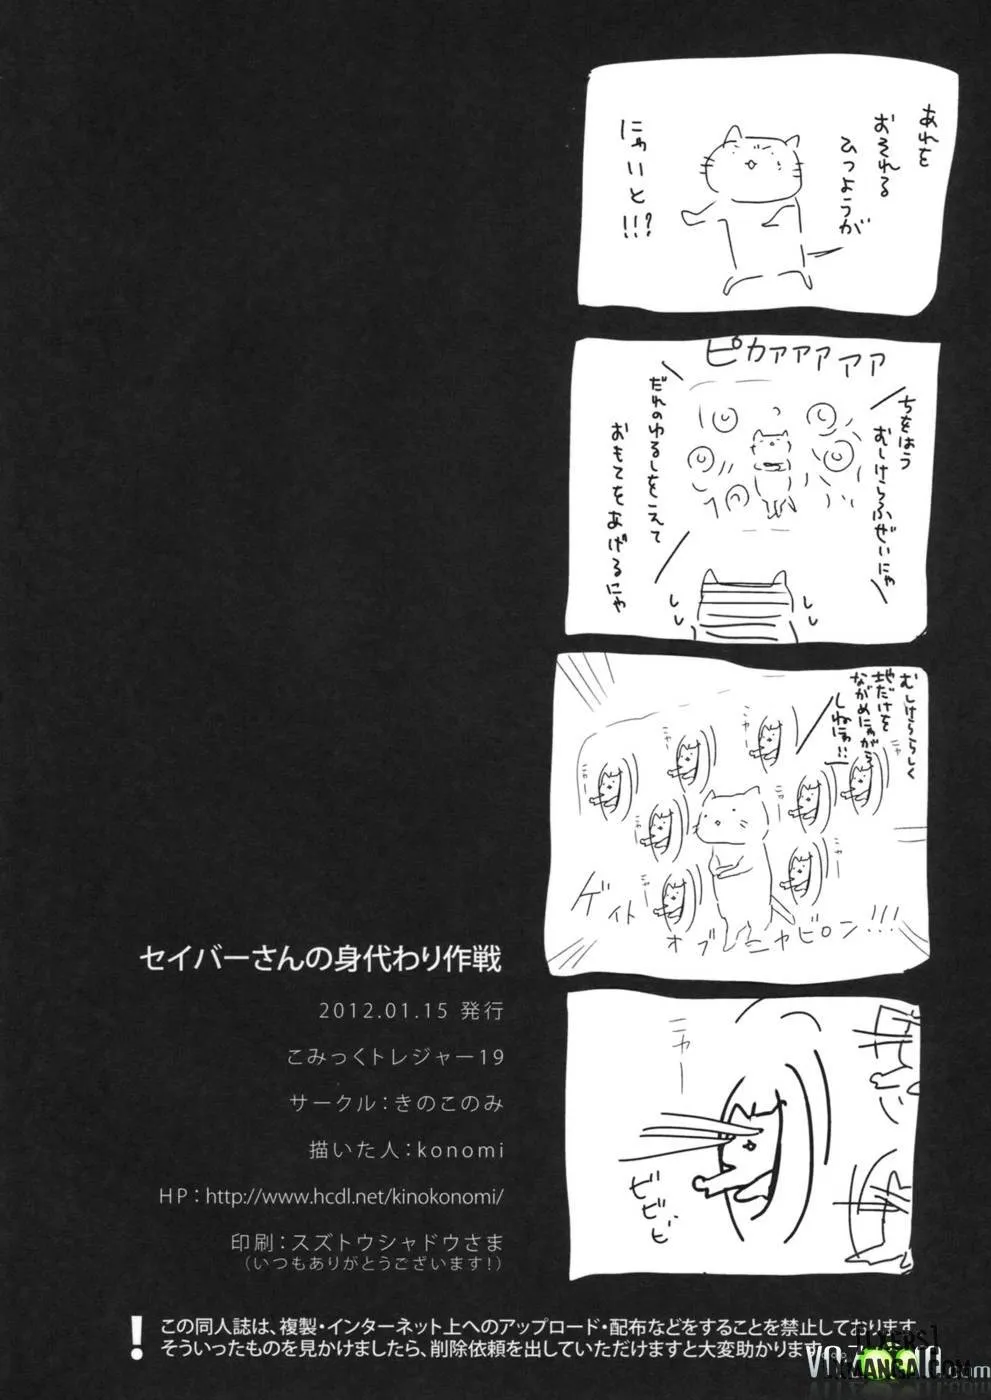 あれを
おそれる
ひつようが
にゃいと!!!?
ピカァァァァァ
ちをはう
むしけらふぜいにゃ
だれのゆるしをこえて
おもてをあげるにゃ
むしけらららしく
地だけを
ながめにゃがら
しねにゃ!!
ニャー
ゲイト
オブ
ニャビロン!!!
ニャー
ビビビ
セイバーさんの身代わり作戦
2012.01.15 発行
こみっくトレジャー19
サークル:きのこのみ
描いた人:konomi
HP:http://www.hcdl.net/kinokonomi/
印刷:スズトウシャドウさま
(いつもありがとうございます!)
!
この同人誌は、複製・インターネット上へのアップロード・配布などをすることを禁止しております。
そういったものを見かけましたら、削除依頼を出していただけますと大変助かります